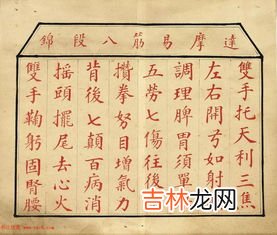 達摩易筋八段錦
雙手托天利三焦
左右開弓如射
調理脾胃須單
五勞七傷往後
攢拳努目增氣力
背後七顛百病消
搖頭擺尾去心火
雙手鞠躬固腎腰
吉林龙网